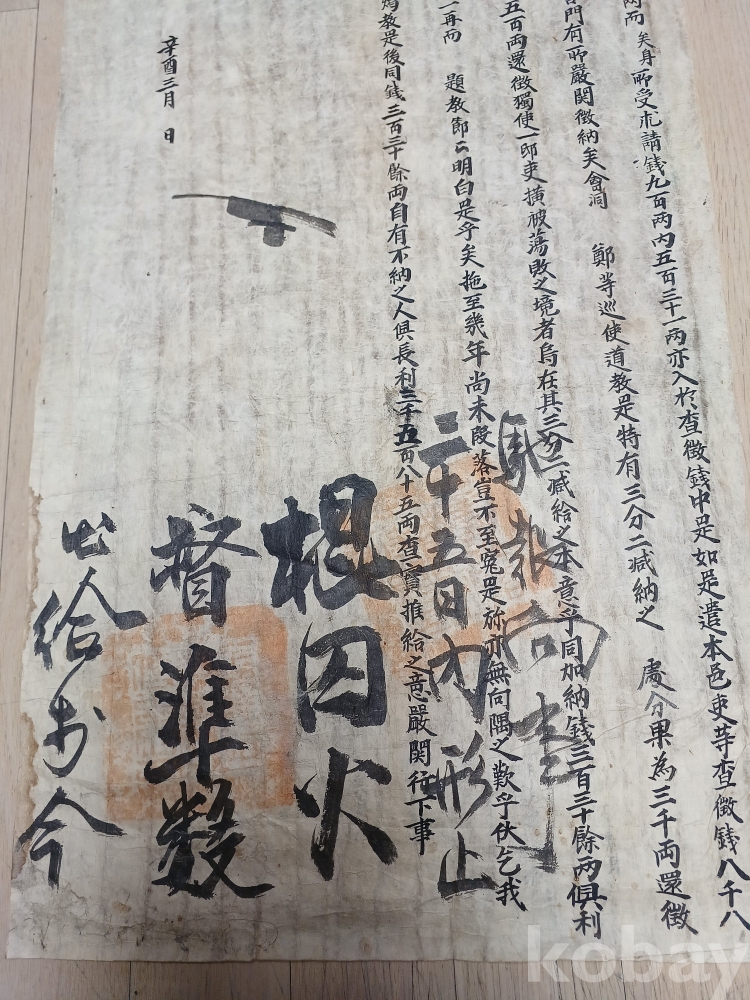 両而 矣身所受朮請錢九百両內五百三十一両亦入於查徵錢中是如是遣本邑吏等查徵錢八千八
門有所嚴関徵納矣會洞 鄭等巡使道教是特有三分二减納之 處分果為三千両還徵
五百両還徵獨使一邸吏橫被蕩敗之境者烏在其三分二减給之本意乎同加納錢三百三十餘両俱利
一再而 題教節々明白是乎矣拖至幾年尚未段落豈不至寃是旀亦無向隅之歎乎伏乞我
教是後同錢三百三十餘両自有不納之人俱長利三千五百八十五両查實推給之意嚴関行下事
辛酉三月 日
二十五日內形止
根因火
督準數
出給ホ今
kobay